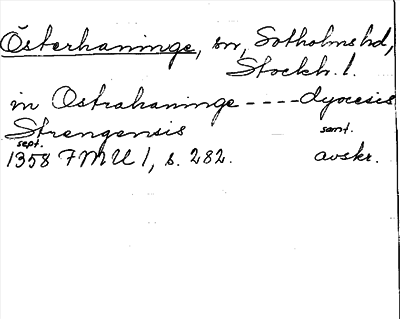 Österhaninge, sn, Sotholms hd,
Stockh. l.
in Ostrahaninge ---- dyocesis
Strengensis
sept. samt.
1358 FMU 1, s. 282. avskr.